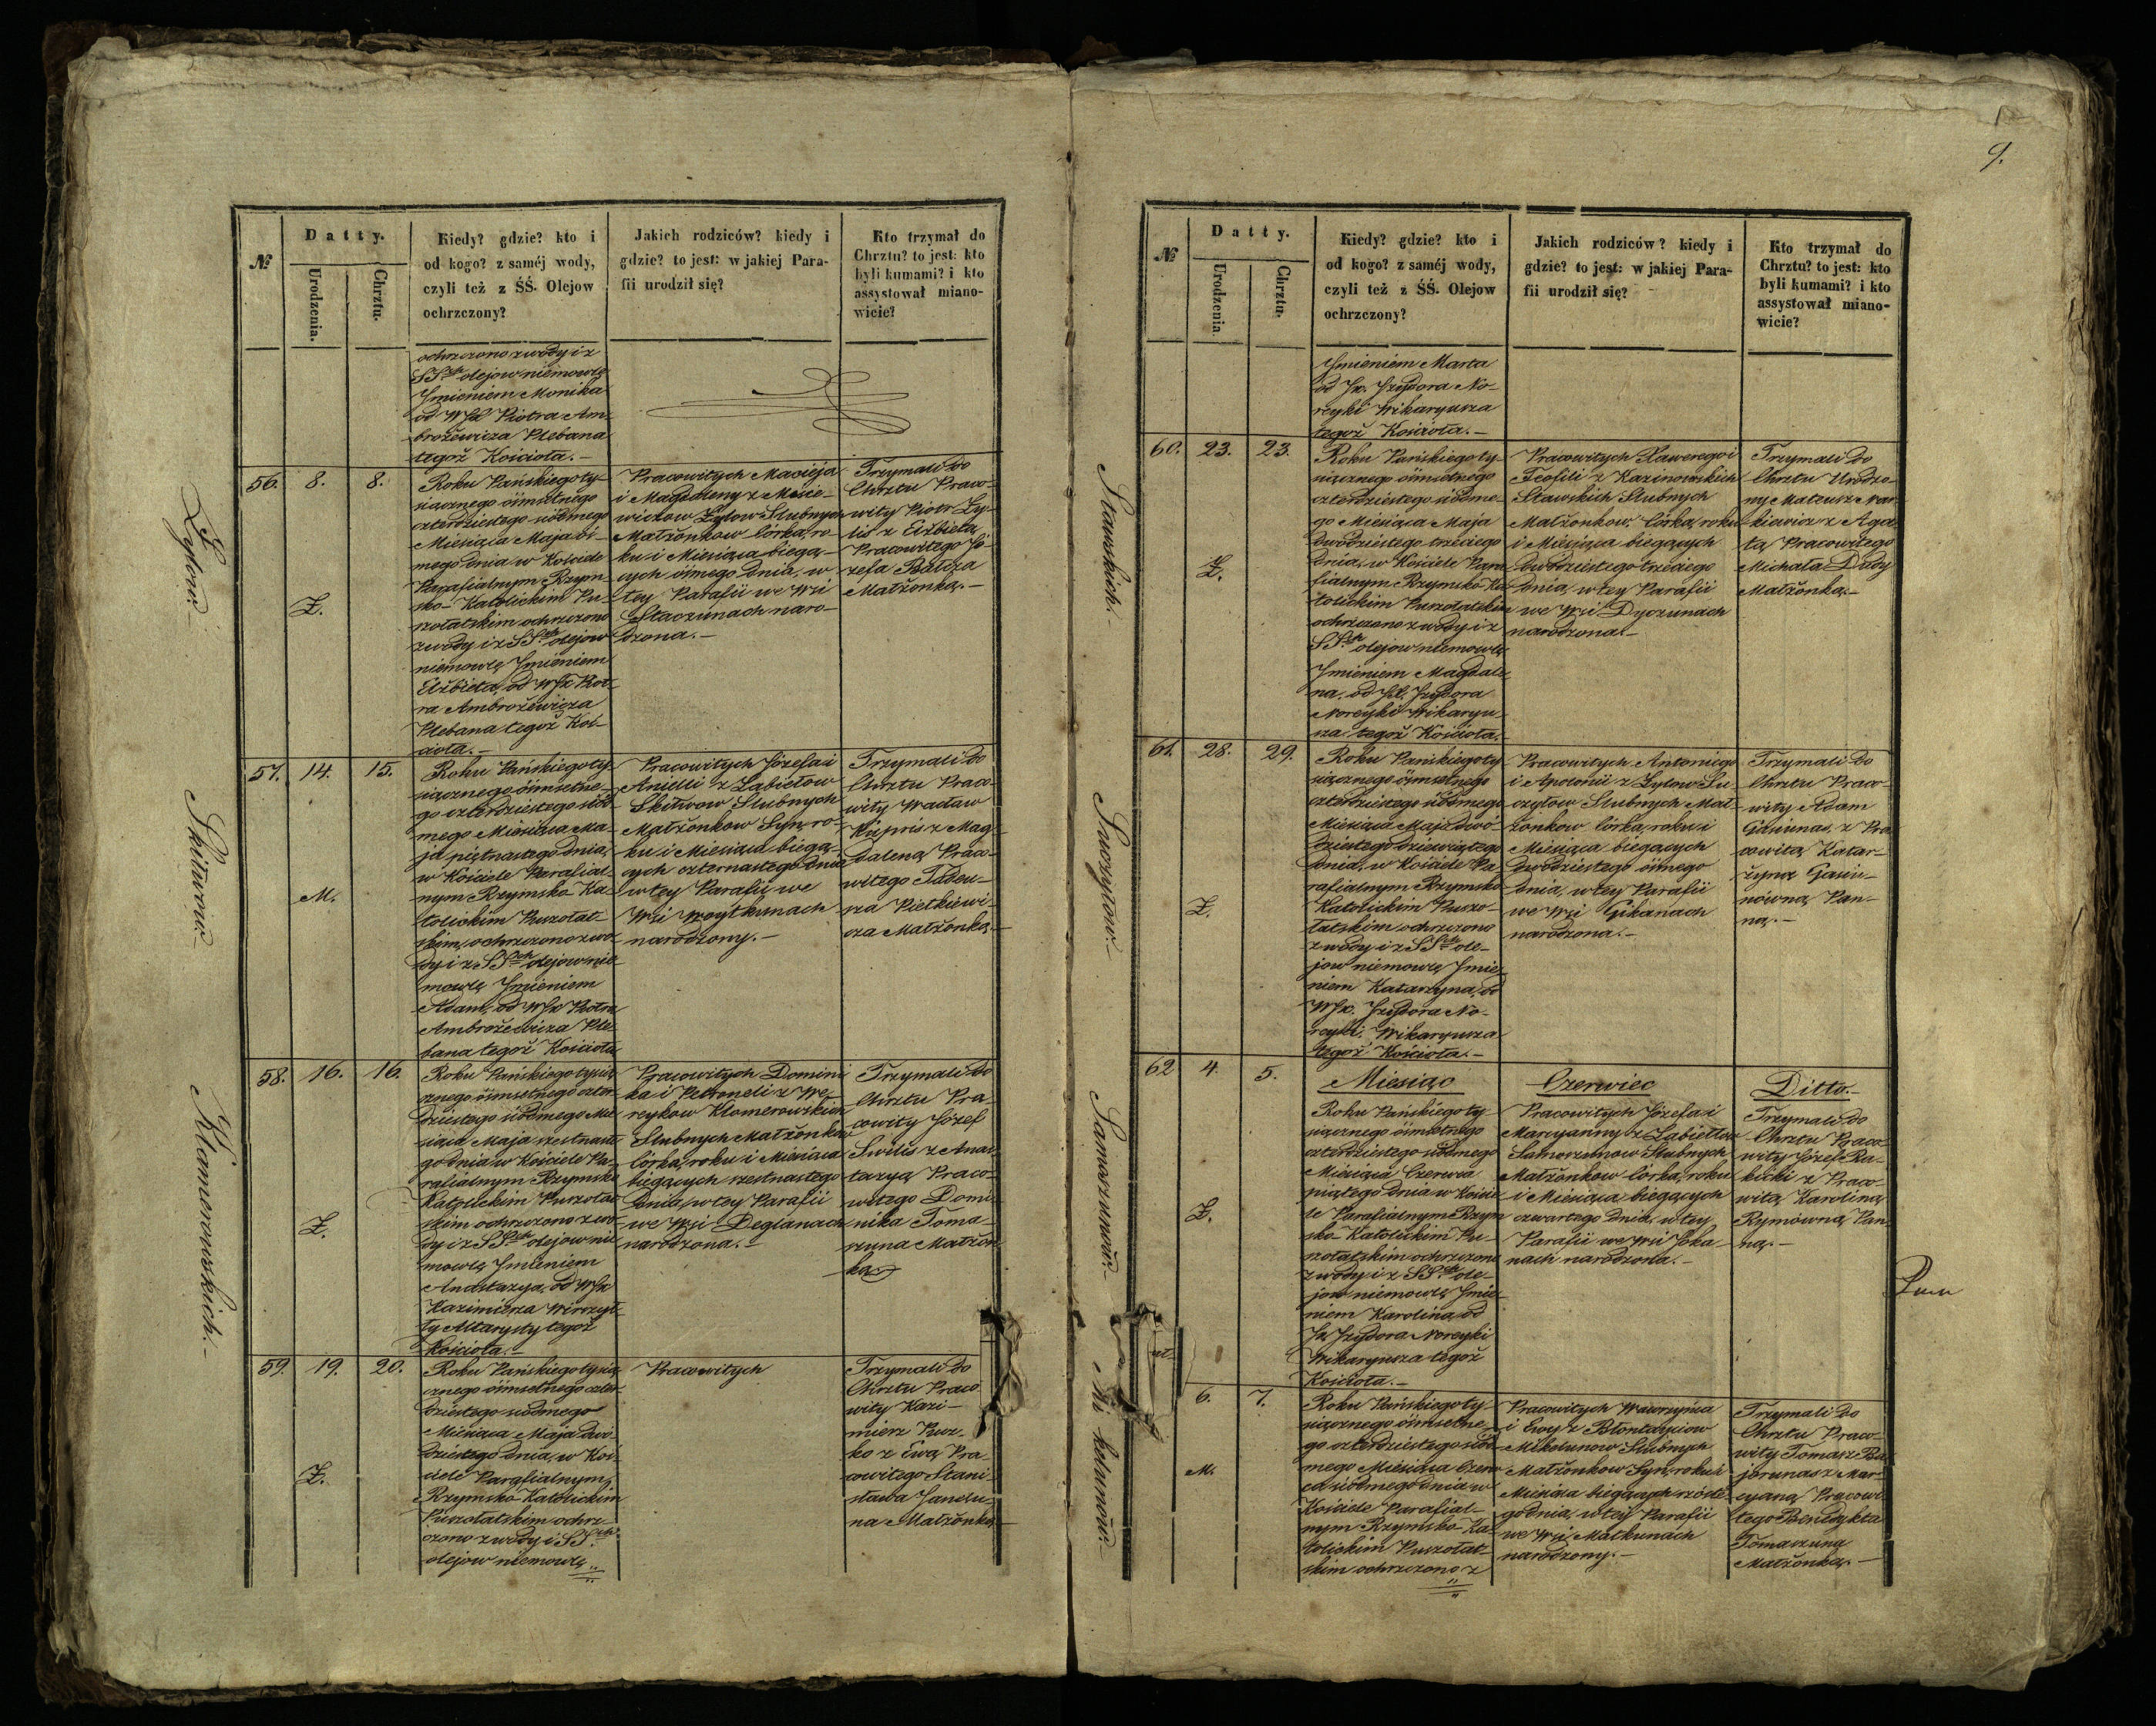 9.
№
Datty.
Urodzenia.
Chrztu.
Kiedy? gdzie? kto i
od kogo? z saméj wody,
czyli też z ŚŚ. Olejow
ochrzczony?
Jakich rodziców? kiedy i
gdzie? to jest: w jakiej Para-
fii urodził się?
Kto trzymał do
Chrztu? to jest: kto
byli kumami? i kto
assystował miano-
wicie?
ochrzczono z wody i z
SSch olejow niemowlę
Jmieniem Monika
od WJX Piotra Am-
brożewicza Plebana
tegoż Kościoła.–
Zylow.–
56.
8.
8.
Ż.
Roku Pańskiego ty-
siącznego ósmsetnego
czterdziestego siódmego
Miesiąca Maja ós-
mego dnia w Kościele
Parafialnym Rzym-
sko-Katolickim Pu-
szołatskim ochrzczono
z wody i z SSch olejow
niemowlę Jmieniem
Elżbieta, od WJX Piot-
ra Ambrożewicza
Plebana tegoż Koś-
cioła.–
Pracowitych Macieja
i Magdaleny z Macie-
wiczow Zylow Slubnych
Małżonkow Córka, ro-
ku i Miesiąca biegą-
cych ósmego dnia, w
tey Parafii we Wsi
Staczunach naro-
dzona.–
Trzymali do
Chrztu Praco-
wity Piotr Zy-
lis z Elżbietą
Pracowitego Jó-
zefa
Małżonką.–
Skitwow.–
57.
14.
15.
M.
Roku Pańskiego ty-
siącznego ósmsetne-
go czterdziestego siód-
mego Miesiąca Ma-
ja piętnastego dnia,
w Kościele Parafial-
nym Rzymsko-Ka-
tolickim Puszołat-
skim, ochrzczono z wo-
dy i z SSch olejow nie-
mowlę Jmieniem
Adam, od WJX Piotra
Ambrożewicza Ple-
bana tegoż Kościoła
Pracowitych Józefa i
Anielli z Łabietow
Skitwow Slubnych
Małżonkow Syn, ro-
ku i Miesiąca biegą-
cych czternastego dnia
w tey Parafii we
Wsi Woytkunach
narodzony.–
Trzymali do
Chrztu Praco-
wity Wacław
Kupris z Mag-
daleną Praco-
witego Tadeu-
sza Pietkiewi-
cza Małżonką.–
Klamerowskich.–
58.
16.
16.
Ż.
Roku Pańskiego tysią-
cznego ósmsetnego czter-
dziestego siódmego Mie-
siąca Maja szestnaste-
go dnia w Kościele Pa-
rafialnym Rzymsko
Katolickim Puszołat-
skim ochrzczono z wo-
dy i z SSch olejow nie-
mowlę Jmieniem
Anastazya, od WJX
Kazimierza Wirszył-
ły Altarysty tegoż
Kościoła.–
Pracowitych Domini-
ka i Petroneli z We-
reykow Klamerowskich
Slubnych Małżonkow
Córka, roku i Miesiąca
biegących szestnastego
dnia, w tey Parafii
we Wsi Deglanach
narodzona.–
Trzymali do
Chrztu Pra-
cowity Józef
Swilis z Anas-
tazyą Praco-
witego Domi-
nika Toma-
szuna Małżon-
ką
59.
19.
20.
Ż.
Roku Pańskiego tysią-
cznego ósmsetnego czter-
dziestego siódmego
Miesiąca Maja dwó-
dziestego dnia, w Koś-
ciele Parafialnym
Rzymsko-Katolickim
Puszołatskim ochrz-
czono z wody i SSch
olejow niemowlę
Pracowitych
Trzymali do
Chrztu Praco-
wity Kazi-
mierz Pusz-
ko z Ewą Pra-
cowitego Stani-
sława Janelu-
na Małżonką.–
№
Datty.
Urodzenia.
Chrztu.
Kiedy? gdzie? kto i
od kogo? z saméj wody,
czyli też z ŚŚ. Olejow
ochrzczony?
Jakich rodziców? kiedy i
gdzie? to jest: w jakiej Para-
fii urodził się?
Kto trzymał do
Chrztu? to jest: kto
byli kumami? i kto
assystował miano-
wicie?
Jmieniem Marta
od JX. Jzydora No-
reyki Wikaryusza
tegoż Kościoła.–
Stawskich.
60.
23.
23.
Ż.
Roku Pańskiego ty-
siącznego ósmsetnego
czterdziestego siódme-
go Miesiąca Maja
dwódziestego trzeciego
dnia, w Kościele Para-
fialnym Rzymsko-Ka-
tolickim Puszołatskim
ochrzczono z wody i z
SSch olejow niemowlę
Jmieniem Magdale-
na, od JX. Jzydora
Noreyki Wikaryu-
sza tegoż Kościoła.
Pracowitych Xawerego i
Teofili z Kazinowskich
Stawskich Slubnych
Małżonkow Córka, roku
i Miesiąca biegących
dwódziestego trzeciego
dnia, w tey Parafii
we Wsi Dyczunach
narodzona.–
Trzymali do
Chrztu Urodzo-
ny Mateusz Nar-
kiewicz z Aga-
tą Pracowitego
Michała Dudy
Małżonką.–
Suczytow.–
61.
28.
29.
Ż.
Roku Pańskiego ty-
siącznego ósmsetnego
czterdziestego siódmego
Miesiąca Maja dwó-
dziestego dziewiątego
dnia, w Kościele Pa-
rafialnym Rzymsko
Katolickim Puszo-
łatskim ochrzczono
z wody i z SSch ole-
jow niemowlę Jmie-
niem Katarzyna, od
WJX. Jzydora No-
reyki, Wikaryusza
tegoż Kościoła.–
Pracowitych Antoniego
i Apolonii z Zylow Su-
czytow Slubnych Mał-
żonkow Córka, roku i
Miesiąca biegących
dwódziestego ósmego
dnia, w tey Parafii
we Wsi Gikanach
narodzona.–
Trzymali do
Chrztu Praco-
wity Adam
Gasiunas z Pra-
cowitą Katar-
żyną Gasiu-
nówną Pan-
ną.–
Samoszunow.–
62
4.
5.
Ż.
Miesiąc
Czerwiec
Ditto.–
Roku Pańskiego ty-
siącznego ósmsetnego
czterdziestego siódmego
Miesiąca Czerwca
piątego dnia w Koście-
le Parafialnym Rzym-
sko-Katolickim Pu-
szołatskim ochrzczono
z wody i z SSch ole-
jow niemowlę Jmie-
niem Karolina, od
JX Jzydora Noreyki
Wikaryusza tegoż
Kościoła.–
Pracowitych Józefa i
Maryanny z Łabietow
Samoszunow Slubnych
Małżonkow Córka, roku
i Miesiąca biegących
czwartego dnia, w tey
Parafii we Wsi Joka-
nach narodzona.–
Trzymali do
Chrztu Praco-
wity Józef Ru-
bicki z Praco-
witą Karoliną
Rymówną Pan-
ną.–
Mikelunow.–
6.
7.
M.
Roku Pańskiego ty-
siącznego ósmsetne-
go czterdziestego siód-
mego Miesiąca Czerw-
ca siódmego dnia w
Kościele Parafial-
nym Rzymsko-Ka-
tolickim Puszołat-
skim ochrzczono z
Pracowitych Wawrzyńca
i Ewy z Błontayciow
Mikelunow Slubnych
Małżonkow Syn, roku i
Miesiąca biegących szóste-
go dnia, w tey Parafii
we Wsi Matkunach
narodzony.–
Trzymali do
Chrztu Praco-
wity Tomasz Ba-
jorunas z Mar-
cyaną Pracowi-
tego Benedykta
Tomaszuna
Małżonką.–